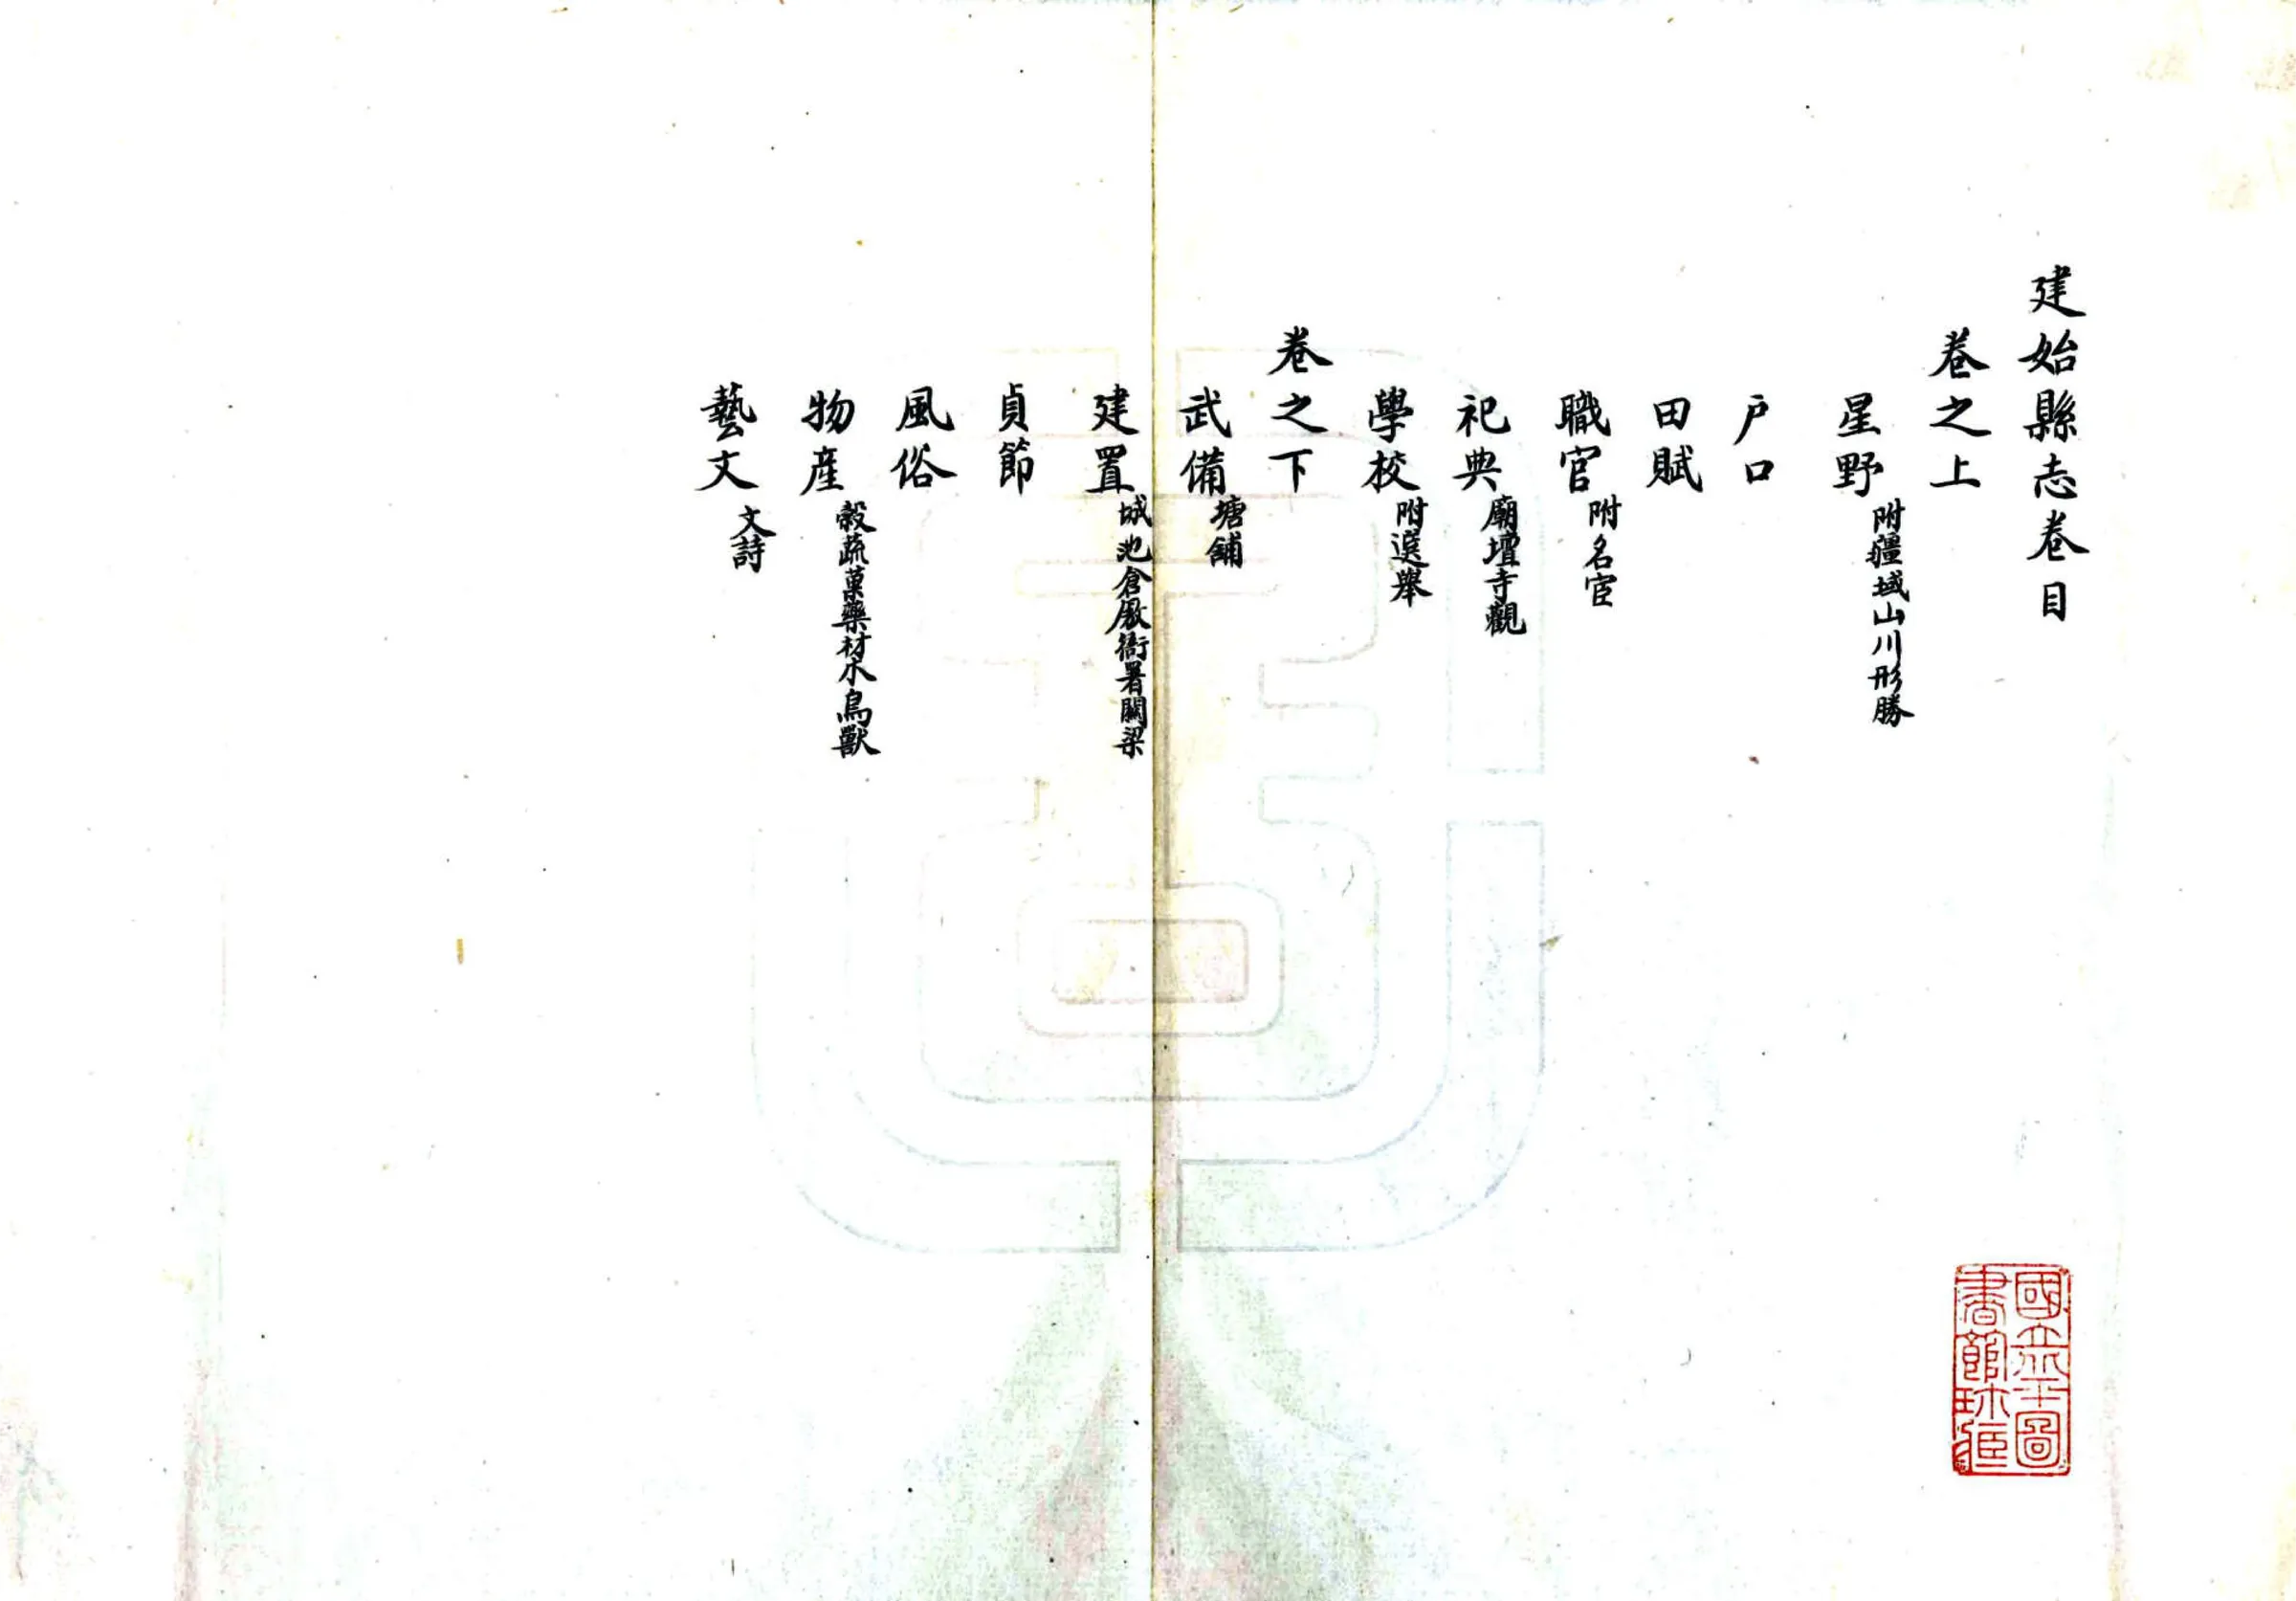 建始縣志卷目
卷之上
星野 附疆域山川形勝
戶口
田賦
職官 附名宦
祀典 廟壇寺觀
學校 附選舉
卷之下
武備 塘鋪
建置 城池倉廒衙署關梁
貞節
風俗
物產 穀蔬菓藥材木鳥獸
藝文 文詩
國立北平圖書館珍藏